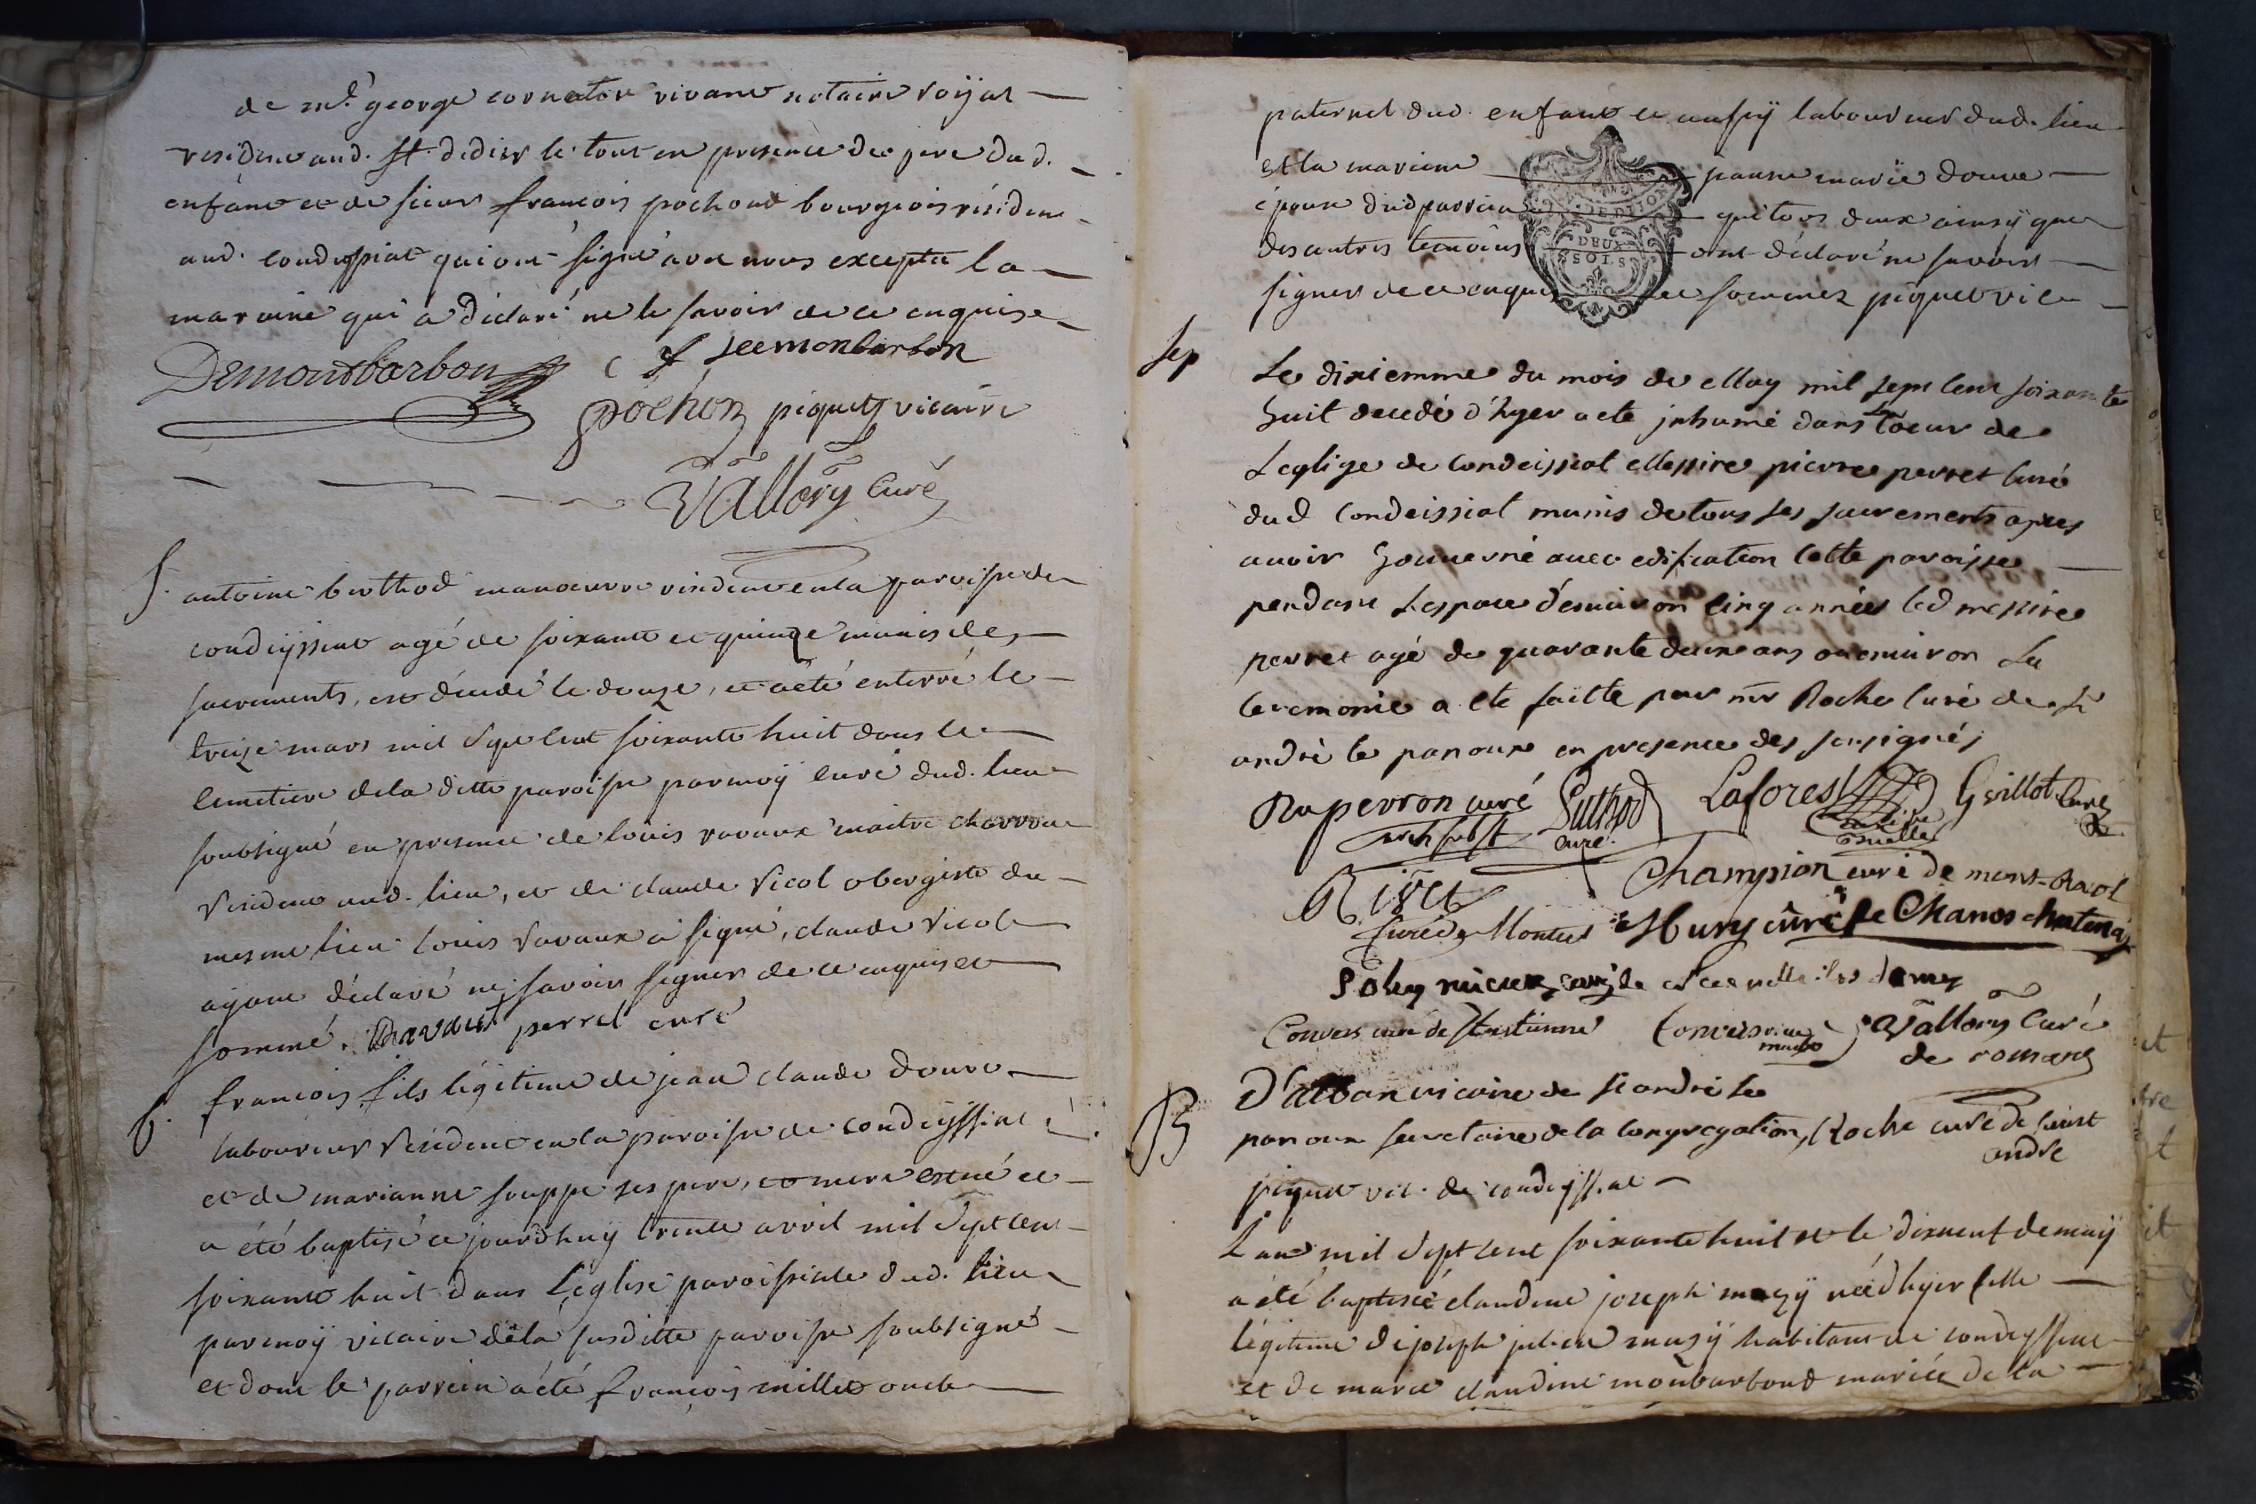 de mr. george cornaton vivant notaire roÿal
residene aud. st. didier le tout en presence du pere dud.
enfant et de sieur françois pochond bourgeois résidene
aud. condeyssiat qui ont signé avec nous excepté la
maraine qui a déclaré ne le savoir de ce enquise
Demontbarbon c f Deemonbarbon
pochon piquet vicaire
Vallory Curé
S. antoine berthod manoeuvre résidene en la paroisse de
condeÿssiat agé de soixante et quinze munis des
sacrements, est décédé le douze, et a été enterré le
treize mars mil sept cent soixante huit dans le
cimetiere de la ditte paroisse par moÿ curé dud. lieu
soubsigné en presence de loüis ravaux maitre charron
résidene aud. lieu, et de claude vicol obergiste du
mesme lieu louis ravaux a signé, claude vicol
aÿant déclaré ne savoir signer de ce enquis et
sommé. Ravaux perret curé
b. françois fils légitime de jean claude douve
laboureur résidene en la paroisse de condeÿssiat
et de marianne souppe ses pere, et mere est né et
a été baptisé ce jourdhuÿ trente avril mil sept cent
soixante huit dans l'eglise paroissiale dud. lieu
par moÿ vicaire de la susditte paroisse soubsigné
et dont le parrein a été françois millet oncle
paternel dud. enfant et aussÿ laboureur dud. lieu
et la maraine jeanne marie douve
épouse dud parrein qui tous deux ainsÿ que
DEUX
SOLS
des autres temoins ont déclaré ne savoir
signer de ce enquis et sommez piquet vic
sep Le dixiemme du mois de May mil sept cent soixante
huit decedé d'hyer a ete jnhumé dans le coeur de
Leglise de Condeissiat Messire pierre perret curé
dud Condeissiat munis de tous ses sacrements apres
avoir gouverné avec edification cette paroisse
pendant Lespace d'environ cinq années led messire
perret agé de quarante deux ans ou environ La
ceremonie a ete faitte par mr Roche curé de st
andré le panoux en presence des sousignés
Rapevron curé Suthod Laforest Guillot curé
arch curé.
Rivet Champion curé de mont-Racol
Curé de Montcet Mury curé de Chanos chatenay
curé de
Convers curé de st etienne Convers vicaire Vallory Curé
de romans
D'alban vicaire de st andré le
B panoux secretaire de la Congregation, Roche curé de saint
andré
piquet vic. de condeÿssiat
L'an mil sept cent soixante huit et le dixneuf de maÿ
a été baptisée claudine joseph mazÿ née d hyer fille
légitime de joseph julien mazÿ habitant de condeyssiat
et de marie claudine monbarbond mariée de la